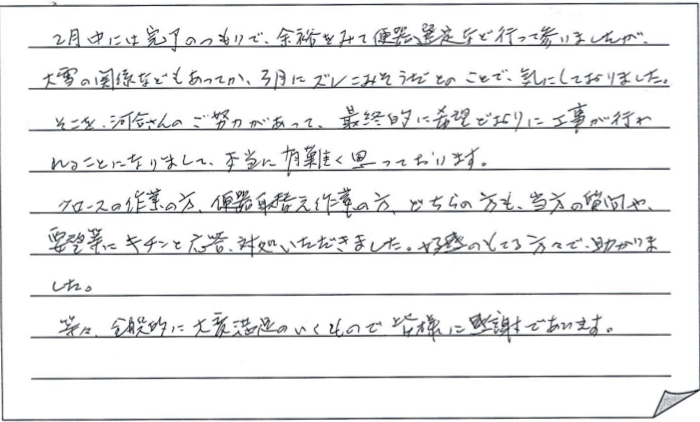 2月中には完了のつもりで、余裕をみて便器選定など行って参りましたが、
大雪の関係などもあってか、3月にズレこみそうだとのことで、気にしておりました。
そこを、河合さんのご努力があって、最終的に希望どおりに工事が行わ
れることになりまして、本当に有難く思っております。
クロースの作業の方、便器取替え作業の方、どちらの方も、当方の質問や、
要望等にキチンと応答、対処いただきました。好感のもてる方々で、助かりま
した。
等々、全般的に大変満足のいくもので皆様に感謝であります。